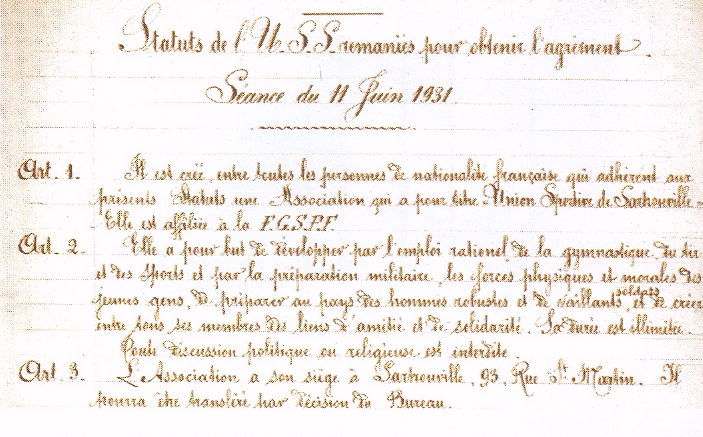 Statuts de l'U.S.S. remaniés pour obtenir l'agrément.
Séance du 11 Juin 1931.
Art. 1. Il est créé, entre toutes les personnes de nationalité française qui adhèrent aux
présents Statuts une Association qui a pour titre "Union Sportive de Sartrouville"
Elle est affiliée à la F.G.S.P.F.
Art. 2. Elle a pour but de développer par l'emploi rationel de la gymnastique, du tir
et des sports et par la préparation militaire, les forces physiques et morales des
jeunes gens, de préparer au pays des hommes robustes et de vaillants soldats, et de créer
entre tous ses membres des liens d'amitié et de solidarité. Sa durée est illimitée.
Toute discussion politique ou religieuse est interdite.
Art. 3. L'Association a son siège à Sartrouville, 93, Rue St Martin. Il
pourra être transféré par décision du Bureau.